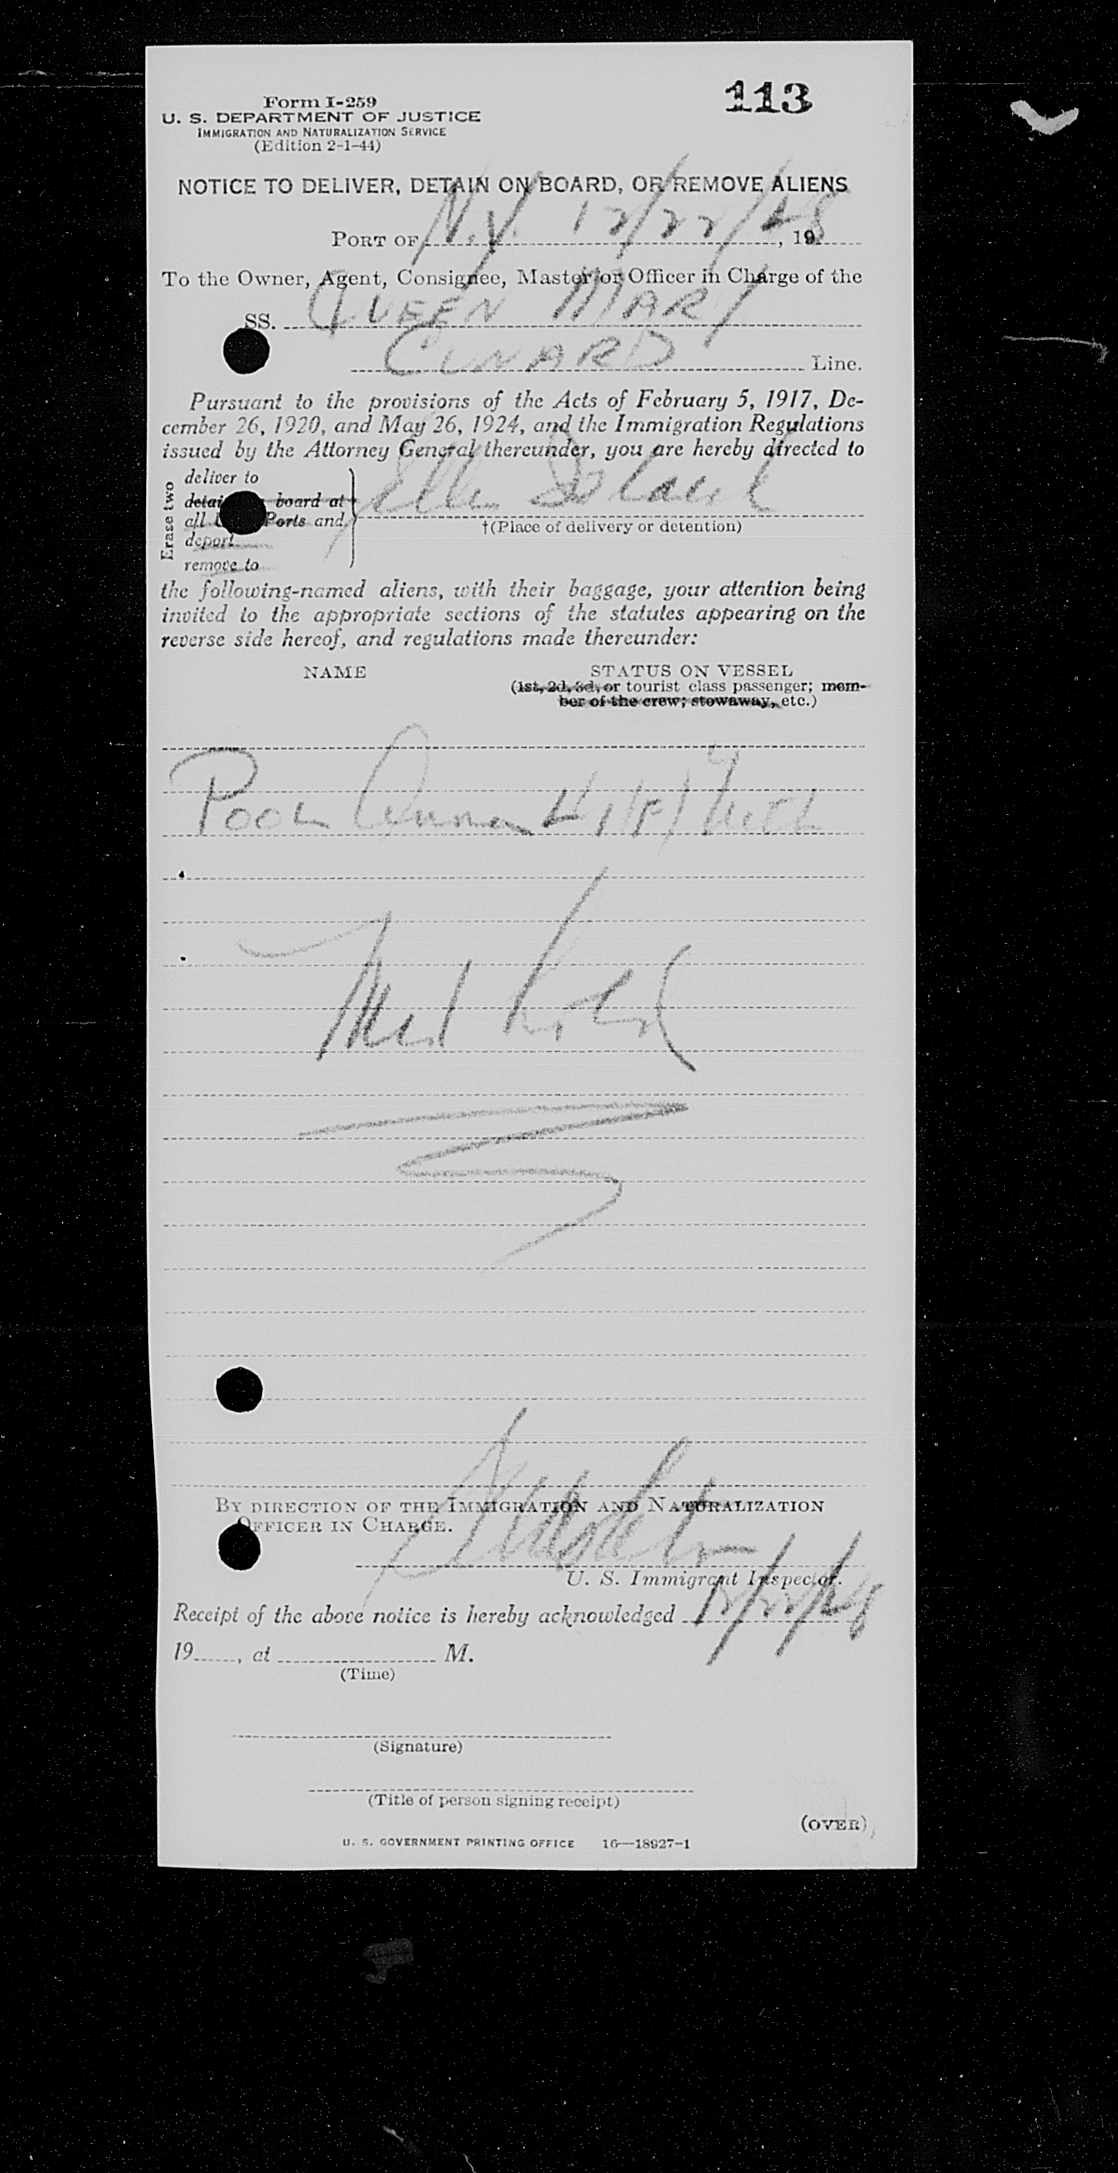 113
Form I-259
U. S. DEPARTMENT OF JUSTICE
IMMIGRATION AND NATURALIZATION SERVICE
(Edition 2-1-44)
NOTICE TO DELIVER, DETAIN ON BOARD, OR REMOVE ALIENS
PORT OF N.Y. 12/22/48, 19
To the Owner, Agent, Consignee, Master or Officer in Charge of the
SS. QUEEN MARY
CUNARD Line.
Pursuant to the provisions of the Acts of February 5, 1917, De-
cember 26, 1920, and May 26, 1924, and the Immigration Regulations
issued by the Attorney General thereunder, you are hereby directed to
Erase two
deliver to
board at
all Ports and
deport
remove to
Ellis Island
†(Place of delivery or detention)
the following-named aliens, with their baggage, your attention being
invited to the appropriate sections of the statutes appearing on the
reverse side hereof, and regulations made thereunder:
NAME STATUS ON VESSEL
(1st, 2d, 3d, or tourist class passenger; mem-
ber of the crew; stowaway, etc.)
Anna
Med Hold
BY DIRECTION OF THE IMMIGRATION AND NATURALIZATION
OFFICER IN CHARGE.
U. S. Immigrant Inspector.
Receipt of the above notice is hereby acknowledged 12/22/48
19, at M.
(Time)
(Signature)
(Title of person signing receipt)
(OVER)
U. S. GOVERNMENT PRINTING OFFICE 16—18927-1